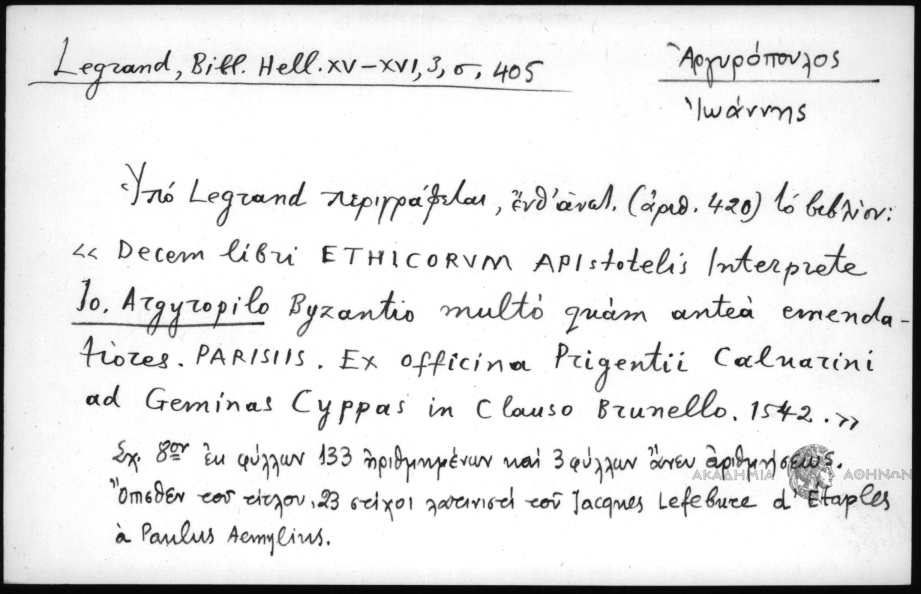 Legrand, Bibl. Hell. XV–XVI, 3, σ. 405
Ἀργυρόπουλος
Ἰωάννης
Ὑπό Legrand περιγράφεται, ἔνθ' ἀνωτ. (ἀριθ. 420) τό βιβλίον:
<< Decem libri ETHICORVM ARIstotelis Interprete
Jo. Argyropilo Byzantio multò quàm anteà emenda-
tiores. PARISIIS. Ex officina Prigentii Caluarini
ad Geminas Cyppas in Clauso Brunello. 1542. >>
Σχ. 8ον ἐκ φύλλων 133 ἠριθμημένων καί 3 φύλλων ἄνευ ἀριθμήσεως.
Ὄπισθεν τοῦ τίτλου, 23 στίχοι λατινιστί τοῦ Jacques Lefebvre d'Étaples
à Paulus Aemylius.
ΑΚΑΔΗΜΙΑ ΑΘΗΝΩΝ